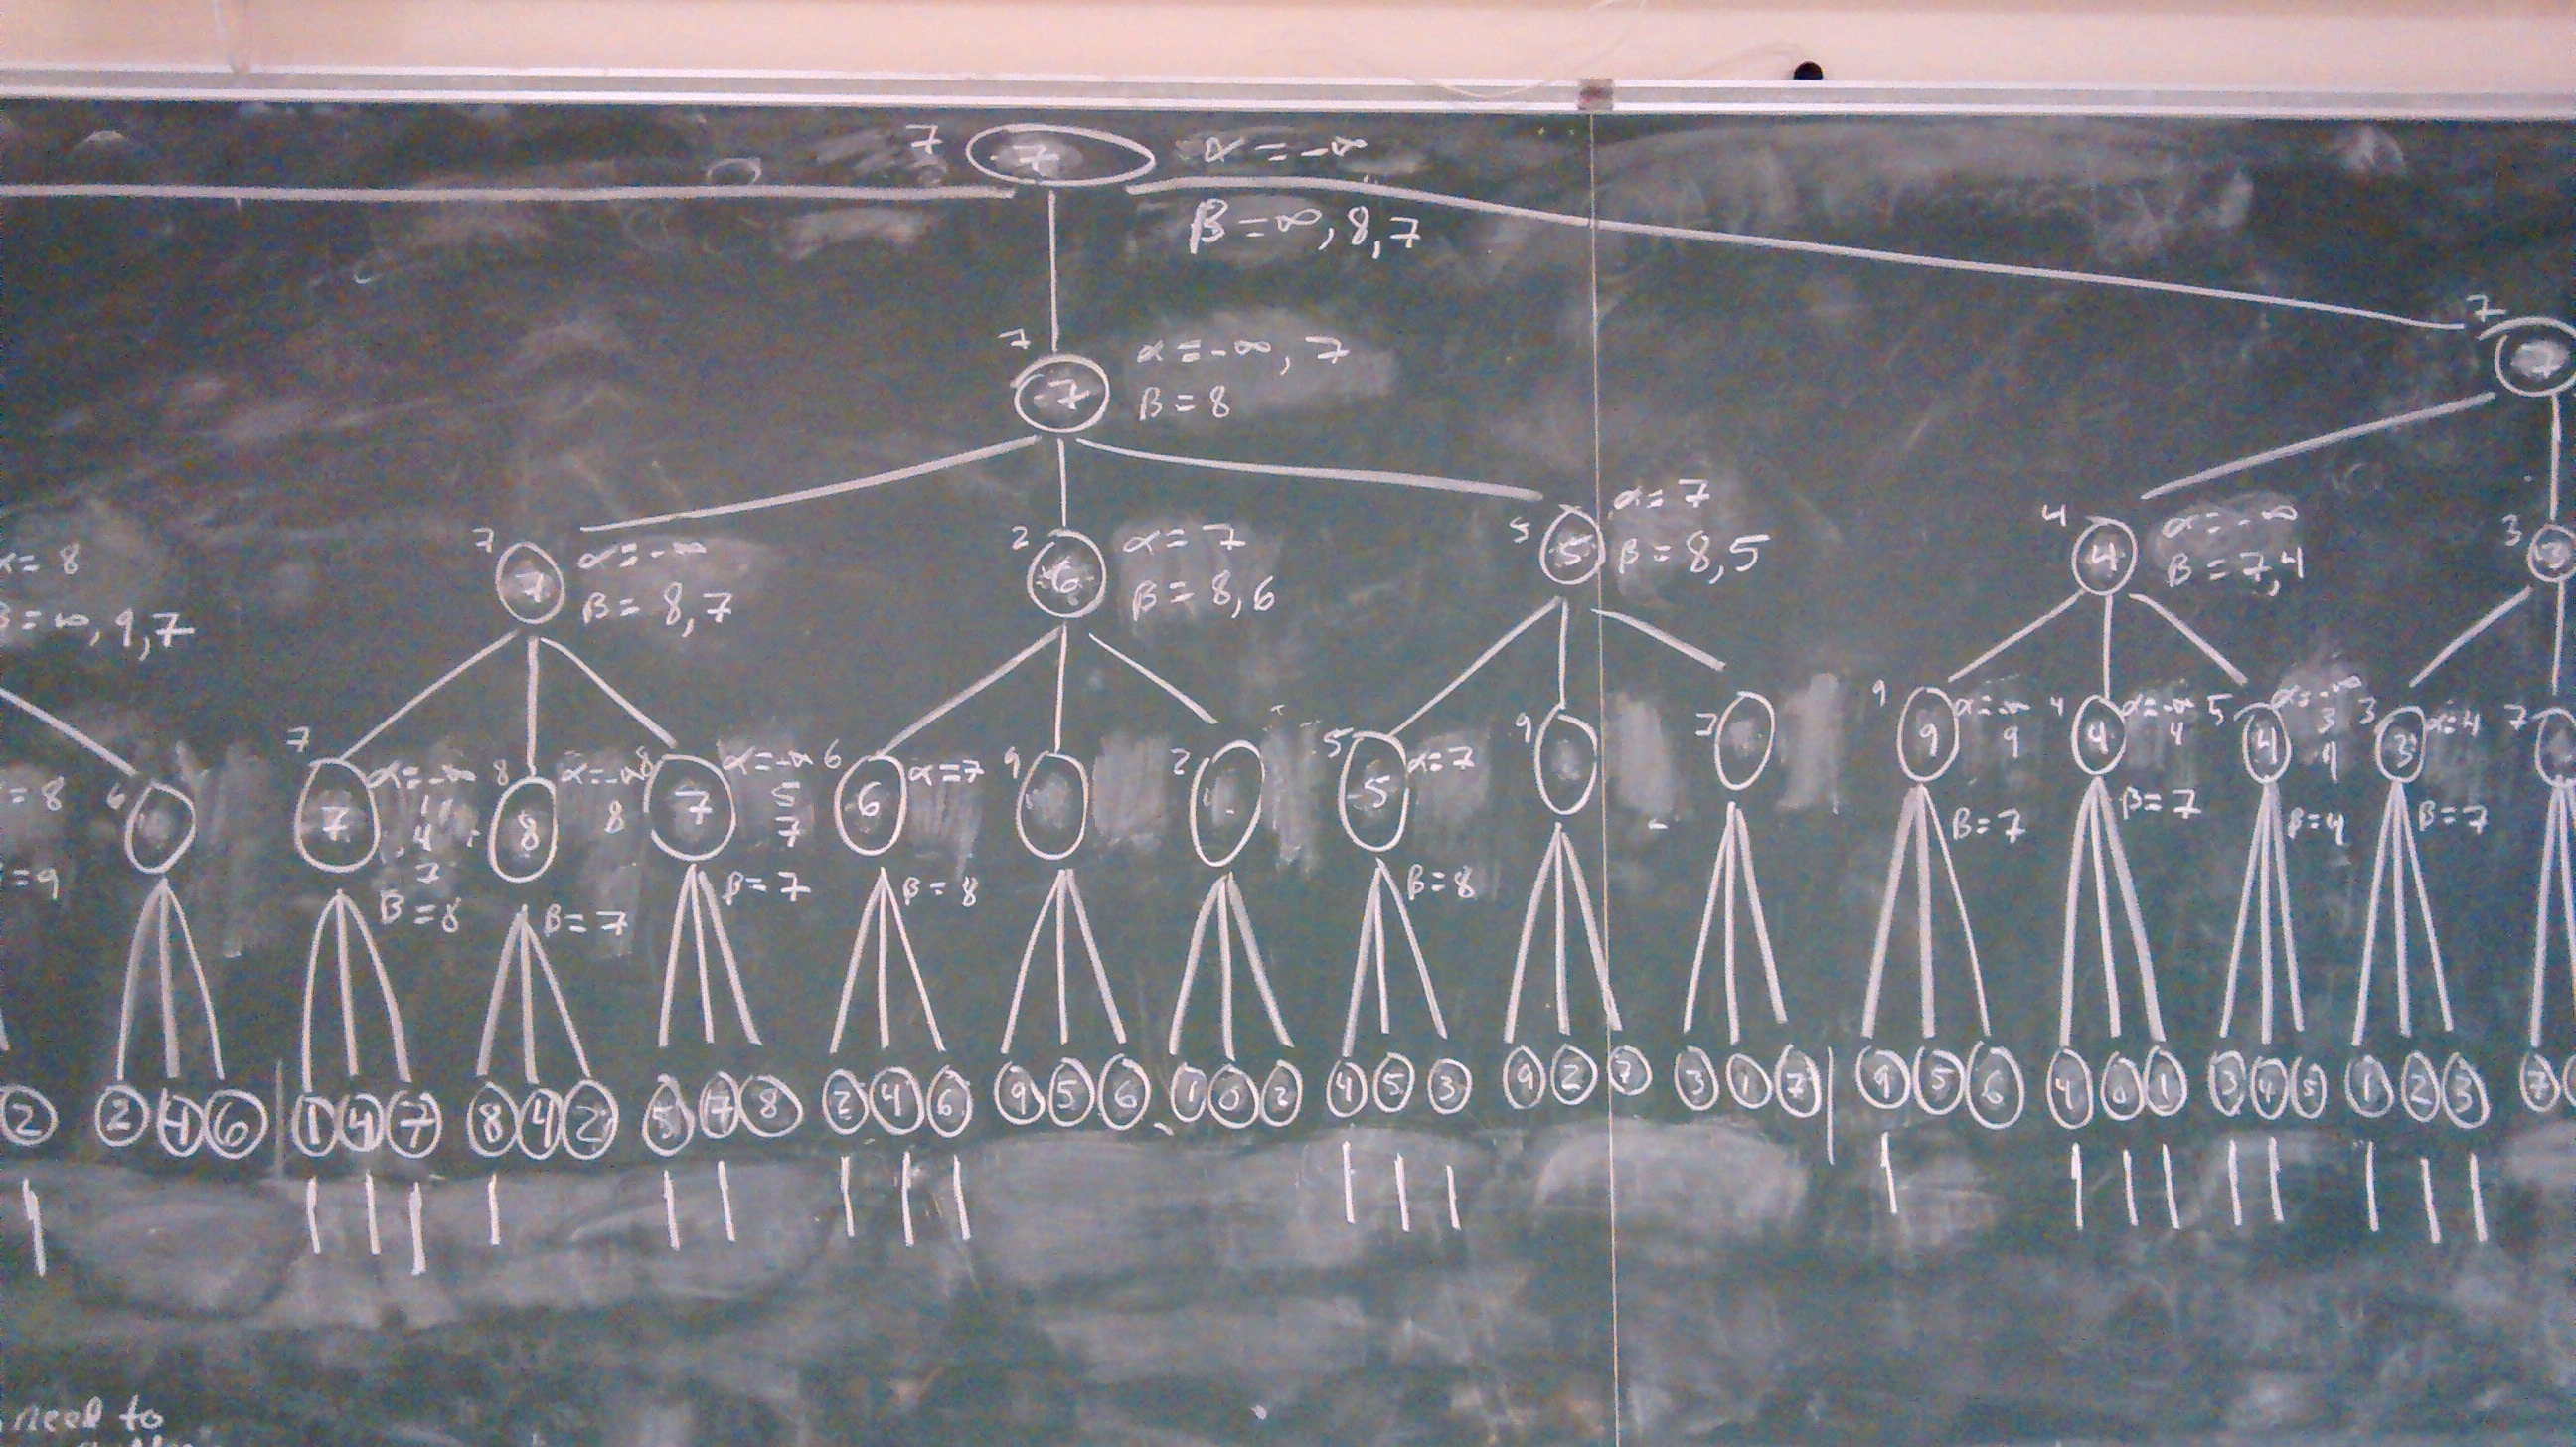 7 7 α = -∞
β = ∞, 8, 7
7
7 α = -∞, 7
7 β = 8
7
α = 8
β = ∞, 9, 7
7 7 α = -∞
β = 8, 7
2 6 α = 7
β = 8, 6
5 5 α = 7
β = 8, 5
4 4 α = -∞
β = 7, 4
3 3
= 8
= 9
6
7 7 α = -∞
1
4
7
β = 8
8 8 α = -∞
8
β = 7
8 7 α = -∞
5
7
β = 7
6 6 α = 7
β = 8
9
2
5 5 α = 7
β = 8
9
9 9 α = -∞
9
β = 7
4 4 α = -∞
4
β = 7
5 4 α = -∞
3
4
β = 4
3 3 α = 4
β = 7
7
2 2 4 6 1 4 7 8 4 2 5 7 8 2 4 6 9 5 6 1 0 2 4 5 3 9 2 7 3 1 7 9 5 6 4 0 1 3 4 5 1 2 3 7
need to